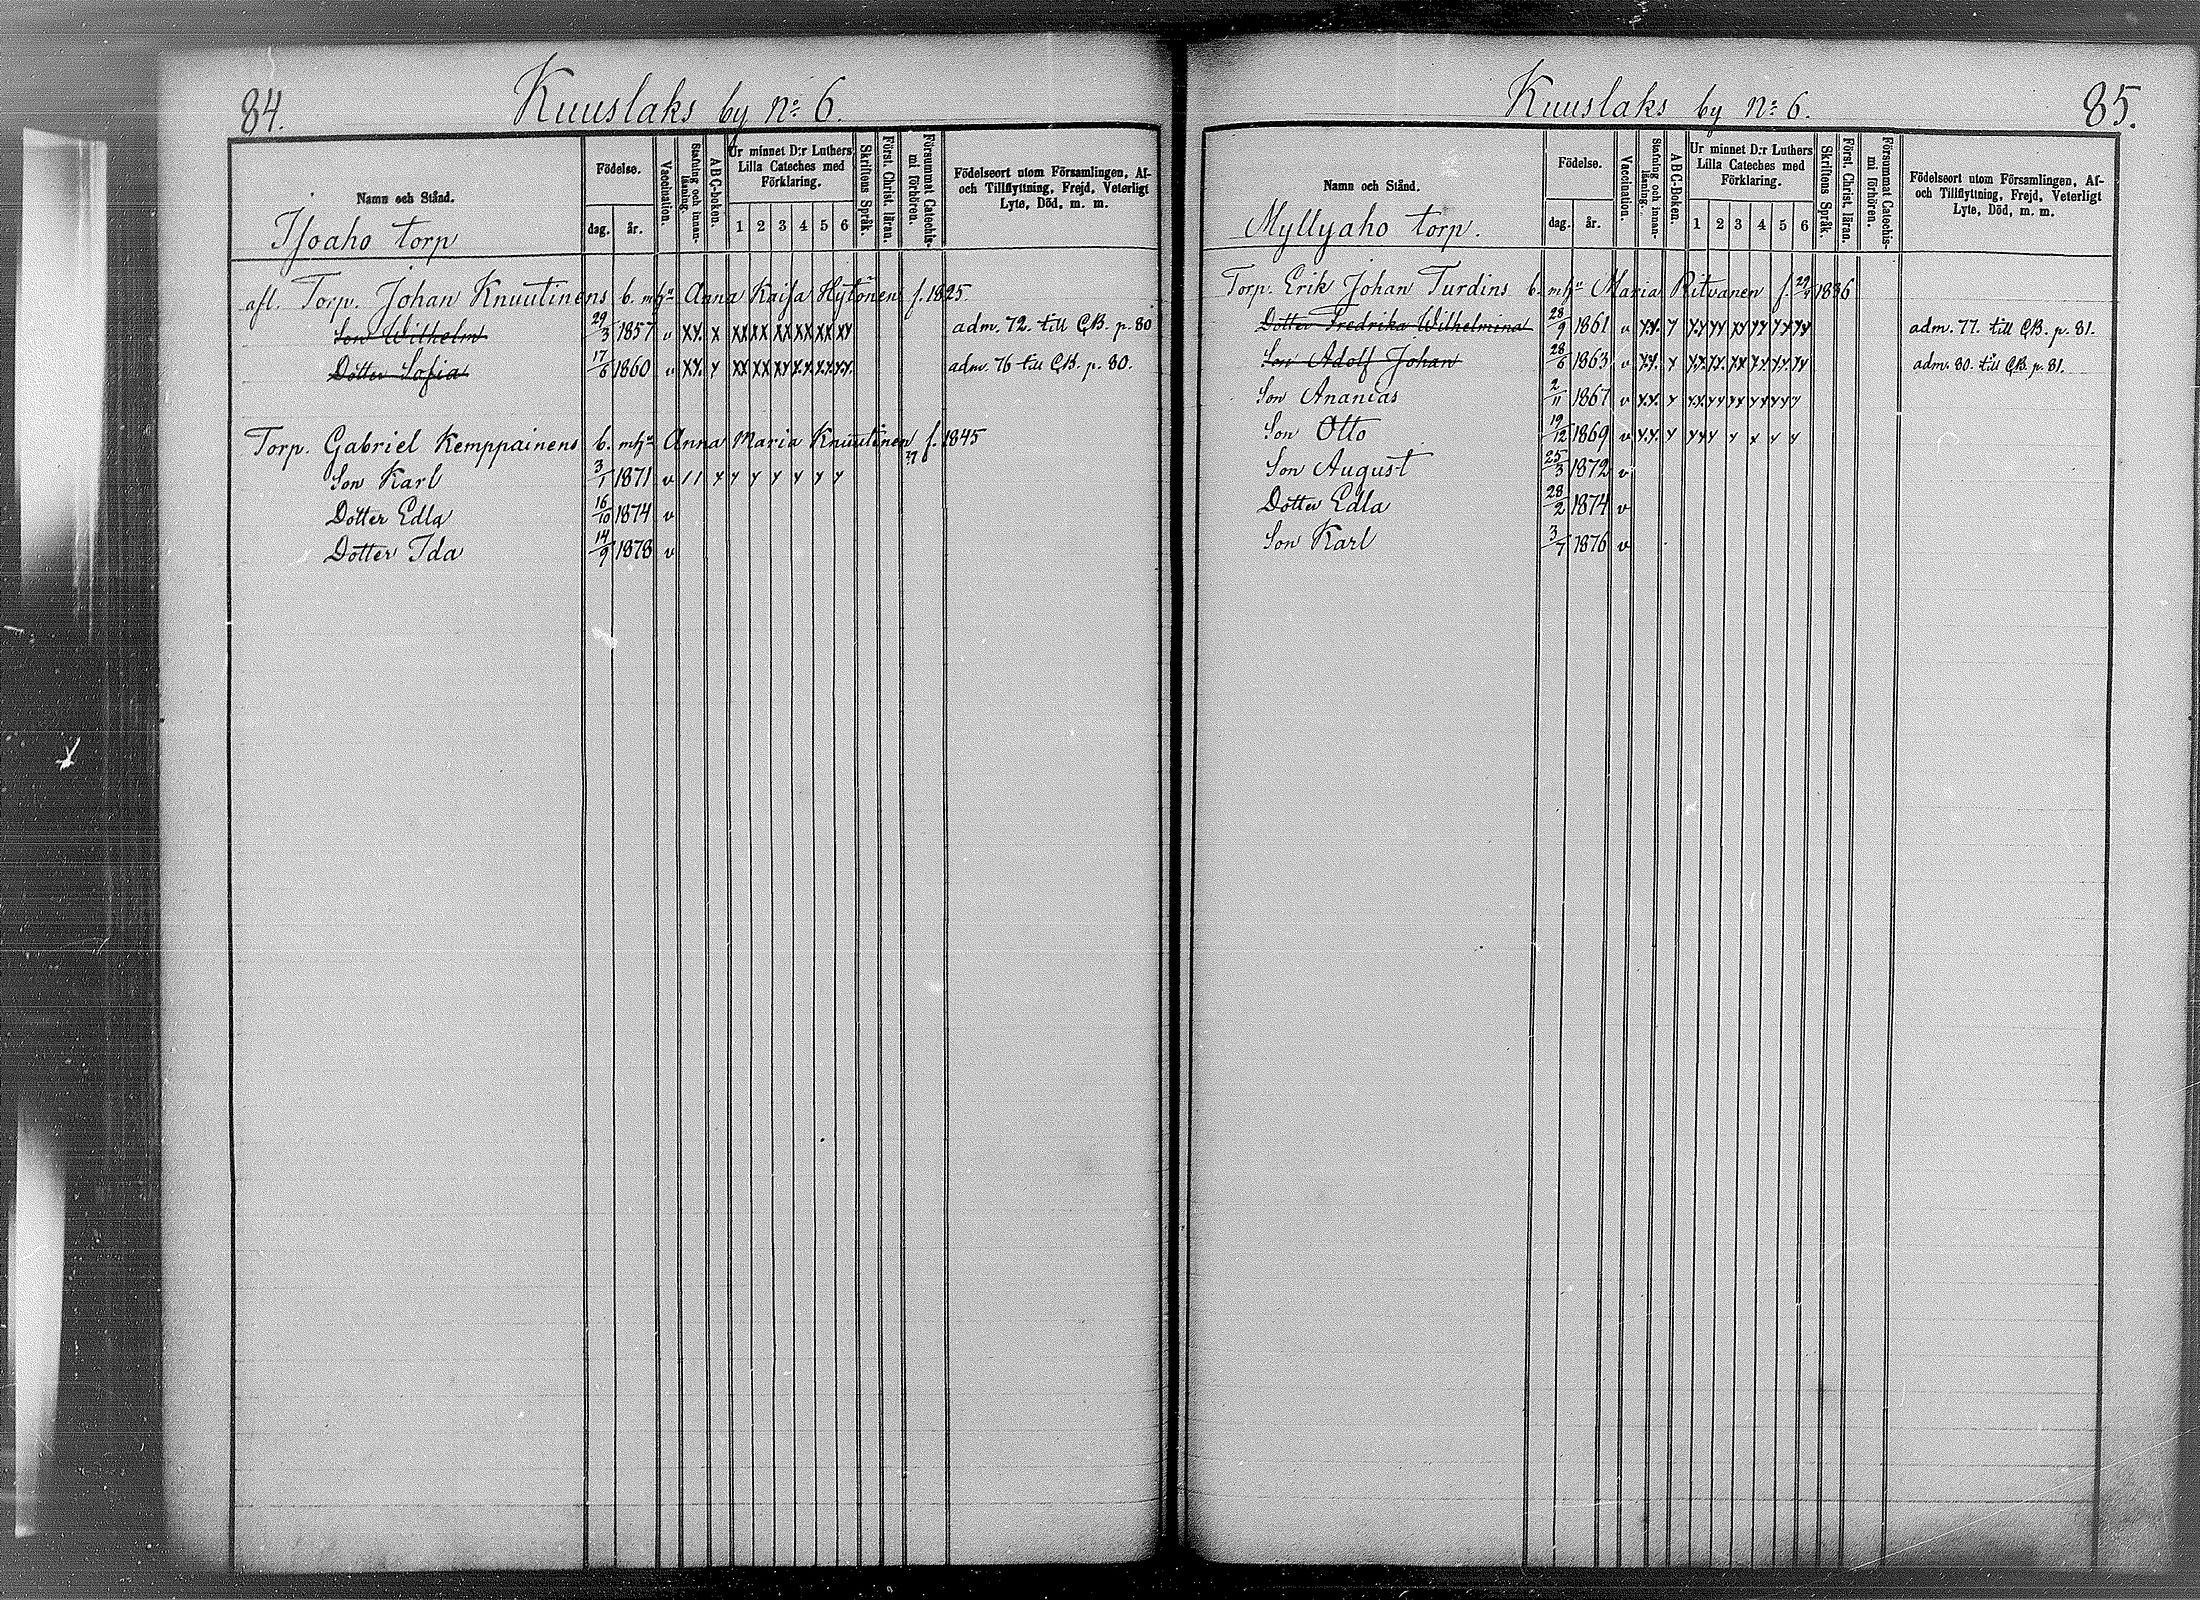 84.
Kuuslaks by No: 6.
Namn och Stånd.
Födelse.
dag. år.
Vaccination.
Stafning och innanläsning.
ABC-boken.
Ur minnet D:r Luthers Lilla Cateches med Förklaring.
1 2 3 4 5 6
Skriftens Språk.
Först. Christ. läran.
Försummat Catechismi förhören.
Födelseort utom Församlingen, Af- och Tillflyttning, Frejd, Veterligt Lyte, Död, m. m.
Isoaho torp
afl. Torp. Johan Knuutinens b. m hu Anna Kaisa Hytönen f. 1825.
Son Wilhelm 29/3 1857 v xx. x xx xx xx xx xx xy adm. 72. till C.B. p. 80
Dotter Sofia 17/6 1860 v xx. y xx xx xy x.y x.y.x.y. adm. 76 till C.B. p. 80.
Torp. Gabriel Kemppainens b. m hu Anna Maria Knuutinen f. 1845
Son Karl 3/1 1871 v // y y y y y y y
Dotter Edla 16/10 1874 v
Dotter Ida 14/9 1878 v
Kuuslaks by No: 6.
85.
Namn och Stånd.
Födelse.
dag. år.
Vaccination.
Stafning och innanläsning.
ABC-boken.
Ur minnet D:r Luthers Lilla Cateches med Förklaring.
1 2 3 4 5 6
Skriftens Språk.
Först. Christ. läran.
Försummat Catechismi förhören.
Födelseort utom Församlingen, Af- och Tillflyttning, Frejd, Veterligt Lyte, Död, m. m.
Myllyaho torp.
Torp. Erik Johan Turdins b. m hu Maria Ritvanen f. 1836
Dotter Fredrika Wilhelmina 28/9 1861 v y.y. y y.y yy xy yy y.y yy adm. 77. till C.B. p. 81.
Son Adolf Johan 28/6 1863 v y.y. y y.y. y.y. yy yy y.y. yy adm. 80. till C.B. p. 81.
Son Ananias 2/11 1867 v y.y. y y.y. yy yy yy yy y
Son Otto 19/12 1869 v y.y. y yy y y y y y
Son August 25/3 1872 v
Dotter Edla 28/2 1874 v
Son Karl 3/7 1876 v